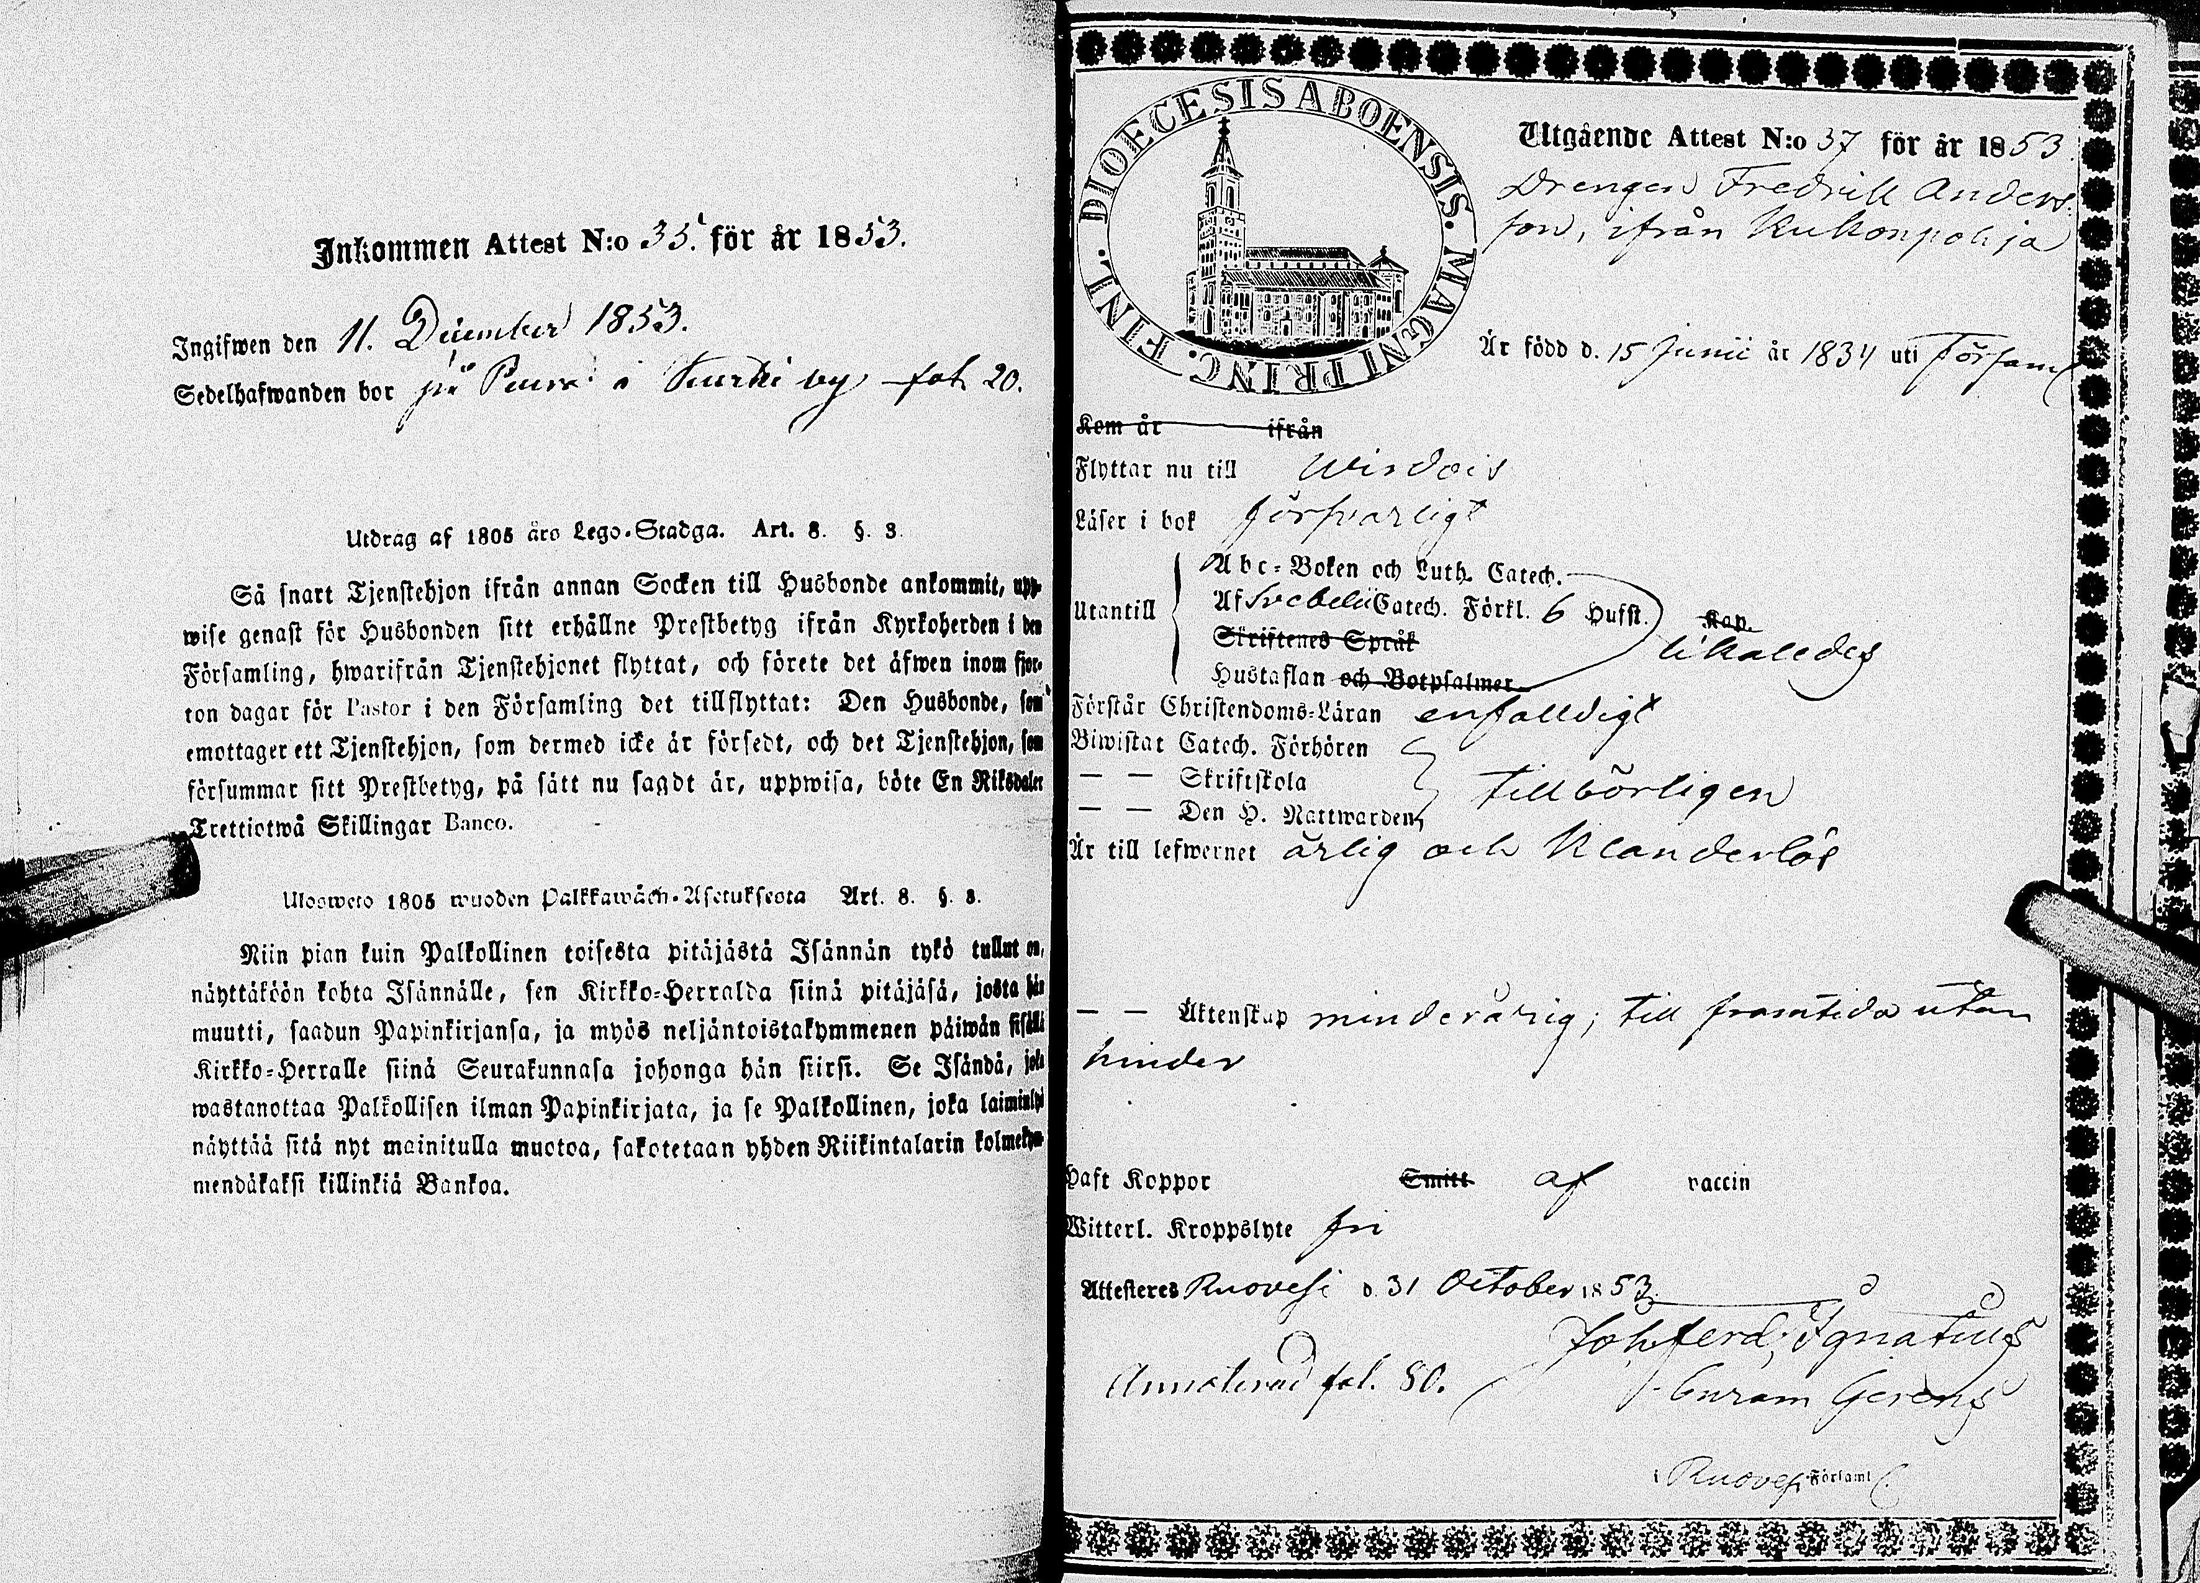 Inkommen Attest N:o 35. för år 1853.
Ingifwen den 11. December 1853.
Sedelhafwanden bor på i Kurki by fol. 20.
Utdrag af 1805 års Lego-Stadga. Art. 8. §. 3.
Så snart Tjenstehjon ifrån annan Socken till Husbonde ankommit, upp-
wise genast för Husbonden sitt erhållne Prestbetyg ifrån Kyrkoherden i den
Församling, hwarifrån Tjenstehjonet flyttat, och förete det äfwen inom fjor-
ton dagar för Pastor i den Församling det tillflyttat: Den Husbonde, som
emottager ett Tjenstehjon, som dermed icke är försedt, och det Tjenstehjon, som
försummar sitt Prestbetyg, på sätt nu sagdt är, uppwisa, böte En Riksdaler
Trettiotwå Skillingar Banco.
Ulosweto 1805 wuoden Palkkawäen-Asetuksesta Art. 8. §. 3.
Niin pian kuin Palkollinen toisesta pitäjästä Isännän tykö tullut on,
näyttäköön kohta Isännälle, sen Kirkko-Herralda siinä pitäjäsä, josta hän
muutti, saadun Papinkirjansa, ja myös neljäntoistakymmenen päiwän sisällä
Kirkko-Herralle siinä Seurakunnasa johonga hän siirsi. Se Isändä, joka
wastanottaa Palkollisen ilman Papinkirjata, ja se Palkollinen, joka laiminlyö
näyttää sitä nyt mainitulla muotoa, sakotetaan yhden Riikintalarin kolmekym-
mendäkaksi killinkiä Bankoa.
DIOECESIS ABOENSIS. MAGNI PRINC. FINL.
Utgående Attest N:o 37 för år 1853.
Drengen Fredrik Anders-
son, ifrån Kukonpohja
Är född d. 15 Junii år 1834 uti Församl
Kom år ifrån
Flyttar nu till Wirdois
Läser i bok försvarligt
Utantill
Abc-Boken och Luth. Catech.
Af Svebelii Catech. Förkl. 6 Hufst. Kap.
Skriftenes Språk
likaledes
Hustaflan och Botpsalmer
Förstår Christendoms-Läran enfalldigt
Biwistat Catech. Förhören
— — Skriftskola tillbörligen
— — Den H. Nattwarden
Är till lefwernet ärlig och klanderlös
— — Äktenskap minderårig; till framtida utan
hinder
Haft Koppor Smitt af vaccin
Witterl. Kroppslyte fri
Attesteres Ruovesi d. 31 October 1853.
Joh. ferd. Ignatius
Annoterad fol. 80.
Curam Gerens
i Ruovesi Församl.